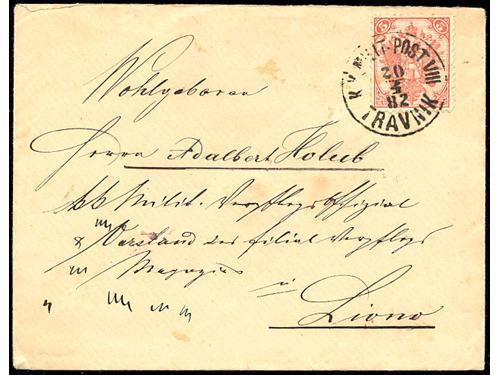 5 5
K.u.K. MILIT. POST VIII
20
4
82
TRAVNIK
Wohlgeboren
Herrn Adalbert Holub
kk Milit. Verpflegsoffizial
& Vorstand des Filial Verpflegs
Magazins
in
Livno